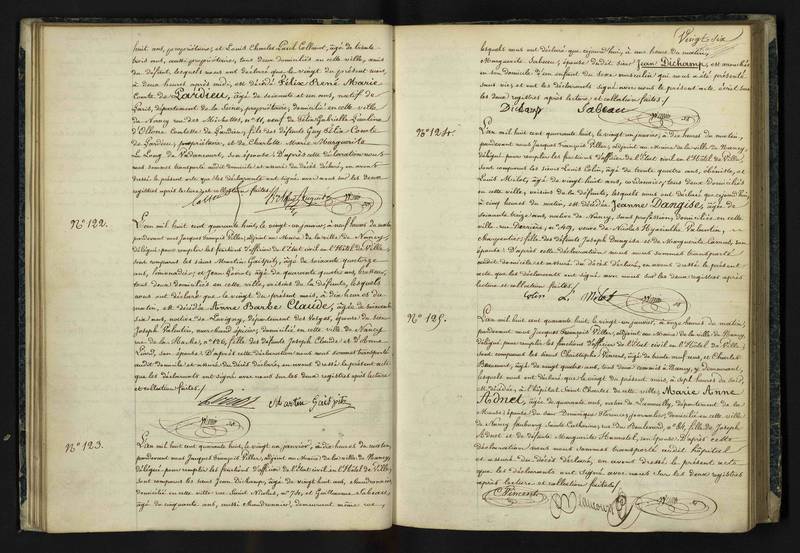 huit ans, propriétaire, et Louis Charles
trois ans, aussi propriétaire, tous deux domiciliés en cette ville, amis
du défunt, lesquels nous ont déclaré que le vingt du présent mois,
à deux heures après midi, est décédé Félix René Marie
Comte de Lardieu, âgé de soixante et un ans, natif de
Paris, département de la Seine, propriétaire, domicilié en cette ville
de Nancy rue des Michottes, n° 11, veuf de Félix Gabrielle
d'Ollone Comtesse de Lardieu, fils des défunts Guy Félix Comte
de Lardieu, propriétaire, et de Charlotte Marie Marguerite
Le Long de son épouse. D'après cette déclaration nous
nous sommes transporté audit domicile et assuré du décès déclaré, en avons
dressé le présent acte que les déclarants ont signé avec nous sur les deux
registres après lecture et collation faites.
N° 122.
L'an mil huit cent quarante huit, le vingt un janvier, à neuf heures du matin
pardevant nous Jacques François Piller, adjoint au Maire de la ville de Nancy
délégué pour remplir les fonctions d'officier de l'état civil en l'Hôtel de Ville
sont comparus les sieurs Martin Gaëspitz, âgé de soixante quatorze
ans, et Jean âgé de quarante quatre ans, brasseur,
tous deux domiciliés en cette ville, voisins de la défunte, lesquels
nous ont déclaré que le vingt du présent mois, à dix heures du
matin, est décédée Anne Barbe Claude, âgée de soixante
six ans, native de département des Vosges, épouse du sieur
Joseph Valentin, marchand épicier, domiciliée en cette ville de Nancy
rue de la Hache, n° 126, fille des défunts Joseph Claude et d'Anne
son épouse. D'après cette déclaration nous nous sommes transporté
audit domicile et assuré du décès déclaré, en avons dressé le présent acte
que les déclarants ont signé avec nous sur les deux registres après lecture
et collation faites.
Martin Gaëspitz
N° 123.
L'an mil huit cent quarante huit, le vingt un janvier, à dix heures du matin
pardevant nous Jacques François Piller, adjoint au Maire de la ville de Nancy,
délégué pour remplir les fonctions d'officier de l'état civil en l'Hôtel de Ville
sont comparus les sieurs Jean Dichamp, âgé de vingt huit ans, chaudronnier,
domicilié en cette ville rue Saint Nicolas, n° 74, et Guillaume Sabeau,
âgé de cinquante ans, aussi chaudronnier, demeurant même rue,
Vingt-six
lesquels nous ont déclaré que cejourd'hui, à une heure du matin,
Marguerite Sabeau, épouse dudit sieur Jean Dichamp, est accouchée
en son domicile d'un enfant du sexe masculin qui nous a été présenté
sans vie et ont les déclarants signé avec nous le présent acte écrit sur
les deux registres après lecture et collation faites.
Dichamp Sabeau
N° 124.
L'an mil huit cent quarante huit, le vingt un janvier, à dix heures du matin,
pardevant nous Jacques François Piller, adjoint au Maire de la ville de Nancy,
délégué pour remplir les fonctions d'officier de l'état civil en l'Hôtel de Ville,
sont comparus les sieurs Louis Colin, âgé de trente quatre ans, ébéniste, et
Louis Milot, âgé de vingt huit ans, cordonnier, tous deux domiciliés
en cette ville, voisins de la défunte, lesquels nous ont déclaré que cejourd'hui,
à cinq heures du matin, est décédée Jeanne Dangise, âgée de
soixante treize ans, native de Nancy, sans profession, domiciliée en cette
ville rue Derrière, n° 109, veuve de Nicolas Hyacinthe
charpentier, fille des défunts Joseph Dangise et de Marguerite son
épouse. D'après cette déclaration nous nous sommes transporté
audit domicile et assuré du décès déclaré, en avons dressé le présent
acte que les déclarants ont signé avec nous sur les deux registres après
lecture et collation faites.
Colin L. Milot
N° 125.
L'an mil huit cent quarante huit, le vingt un janvier, à onze heures du matin,
pardevant nous Jacques François Piller, adjoint au Maire de la ville de Nancy,
délégué pour remplir les fonctions d'officier de l'état civil en l'Hôtel de Ville,
sont comparus les sieurs Christophe Vincent, âgé de trente neuf ans, et Charles
âgé de vingt quatre ans, tous deux commis à Nancy, y demeurant,
lesquels nous ont déclaré que le vingt du présent mois, à sept heures du soir,
est décédée, à l'hôpital Saint Charles de cette ville, Marie Anne
Adnet, âgée de quarante ans, native de département de la
Meuse, épouse du sieur Dominique journalier, domiciliée en cette ville
de Nancy faubourg Sainte Catherine rue du Boulevard, n° 84, fille de Joseph
Adnet et de défunte Marguerite son épouse. D'après cette
déclaration nous nous sommes transporté audit hôpital
et assuré du décès déclaré, en avons dressé le présent acte
que les déclarants ont signé avec nous sur les deux registres
après lecture et collation faites.